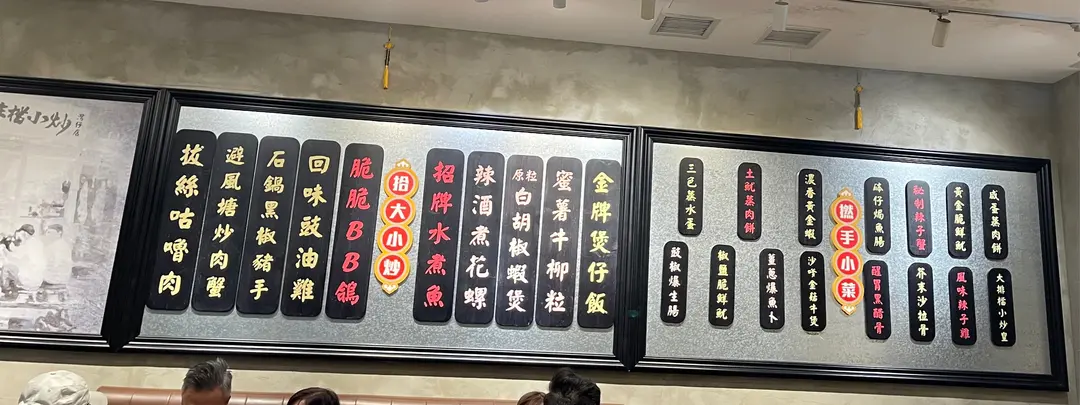 金牌煲仔飯
蜜薯牛柳粒
原粒白胡椒蝦煲
辣酒煮花螺
招牌水煮魚
拾大小炒
脆脆BB鴿
回味豉油雞
石鍋黑椒豬手
避風塘炒肉蟹
拔絲咕嚕肉
鹹蛋蒸肉餅
黃金脆鮮魷
秘制辣子蟹
砵仔焗魚腸
撚手小菜
濃香黃金蝦
土魷蒸肉餅
三色蒸水蛋
大排檔小炒皇
風味辣子雞
芥末沙拉骨
醒胃黑醋骨
沙嗲金菇牛煲
薑蔥爆魚卜
椒鹽脆鮮魷
豉椒爆生腸
檔小炒